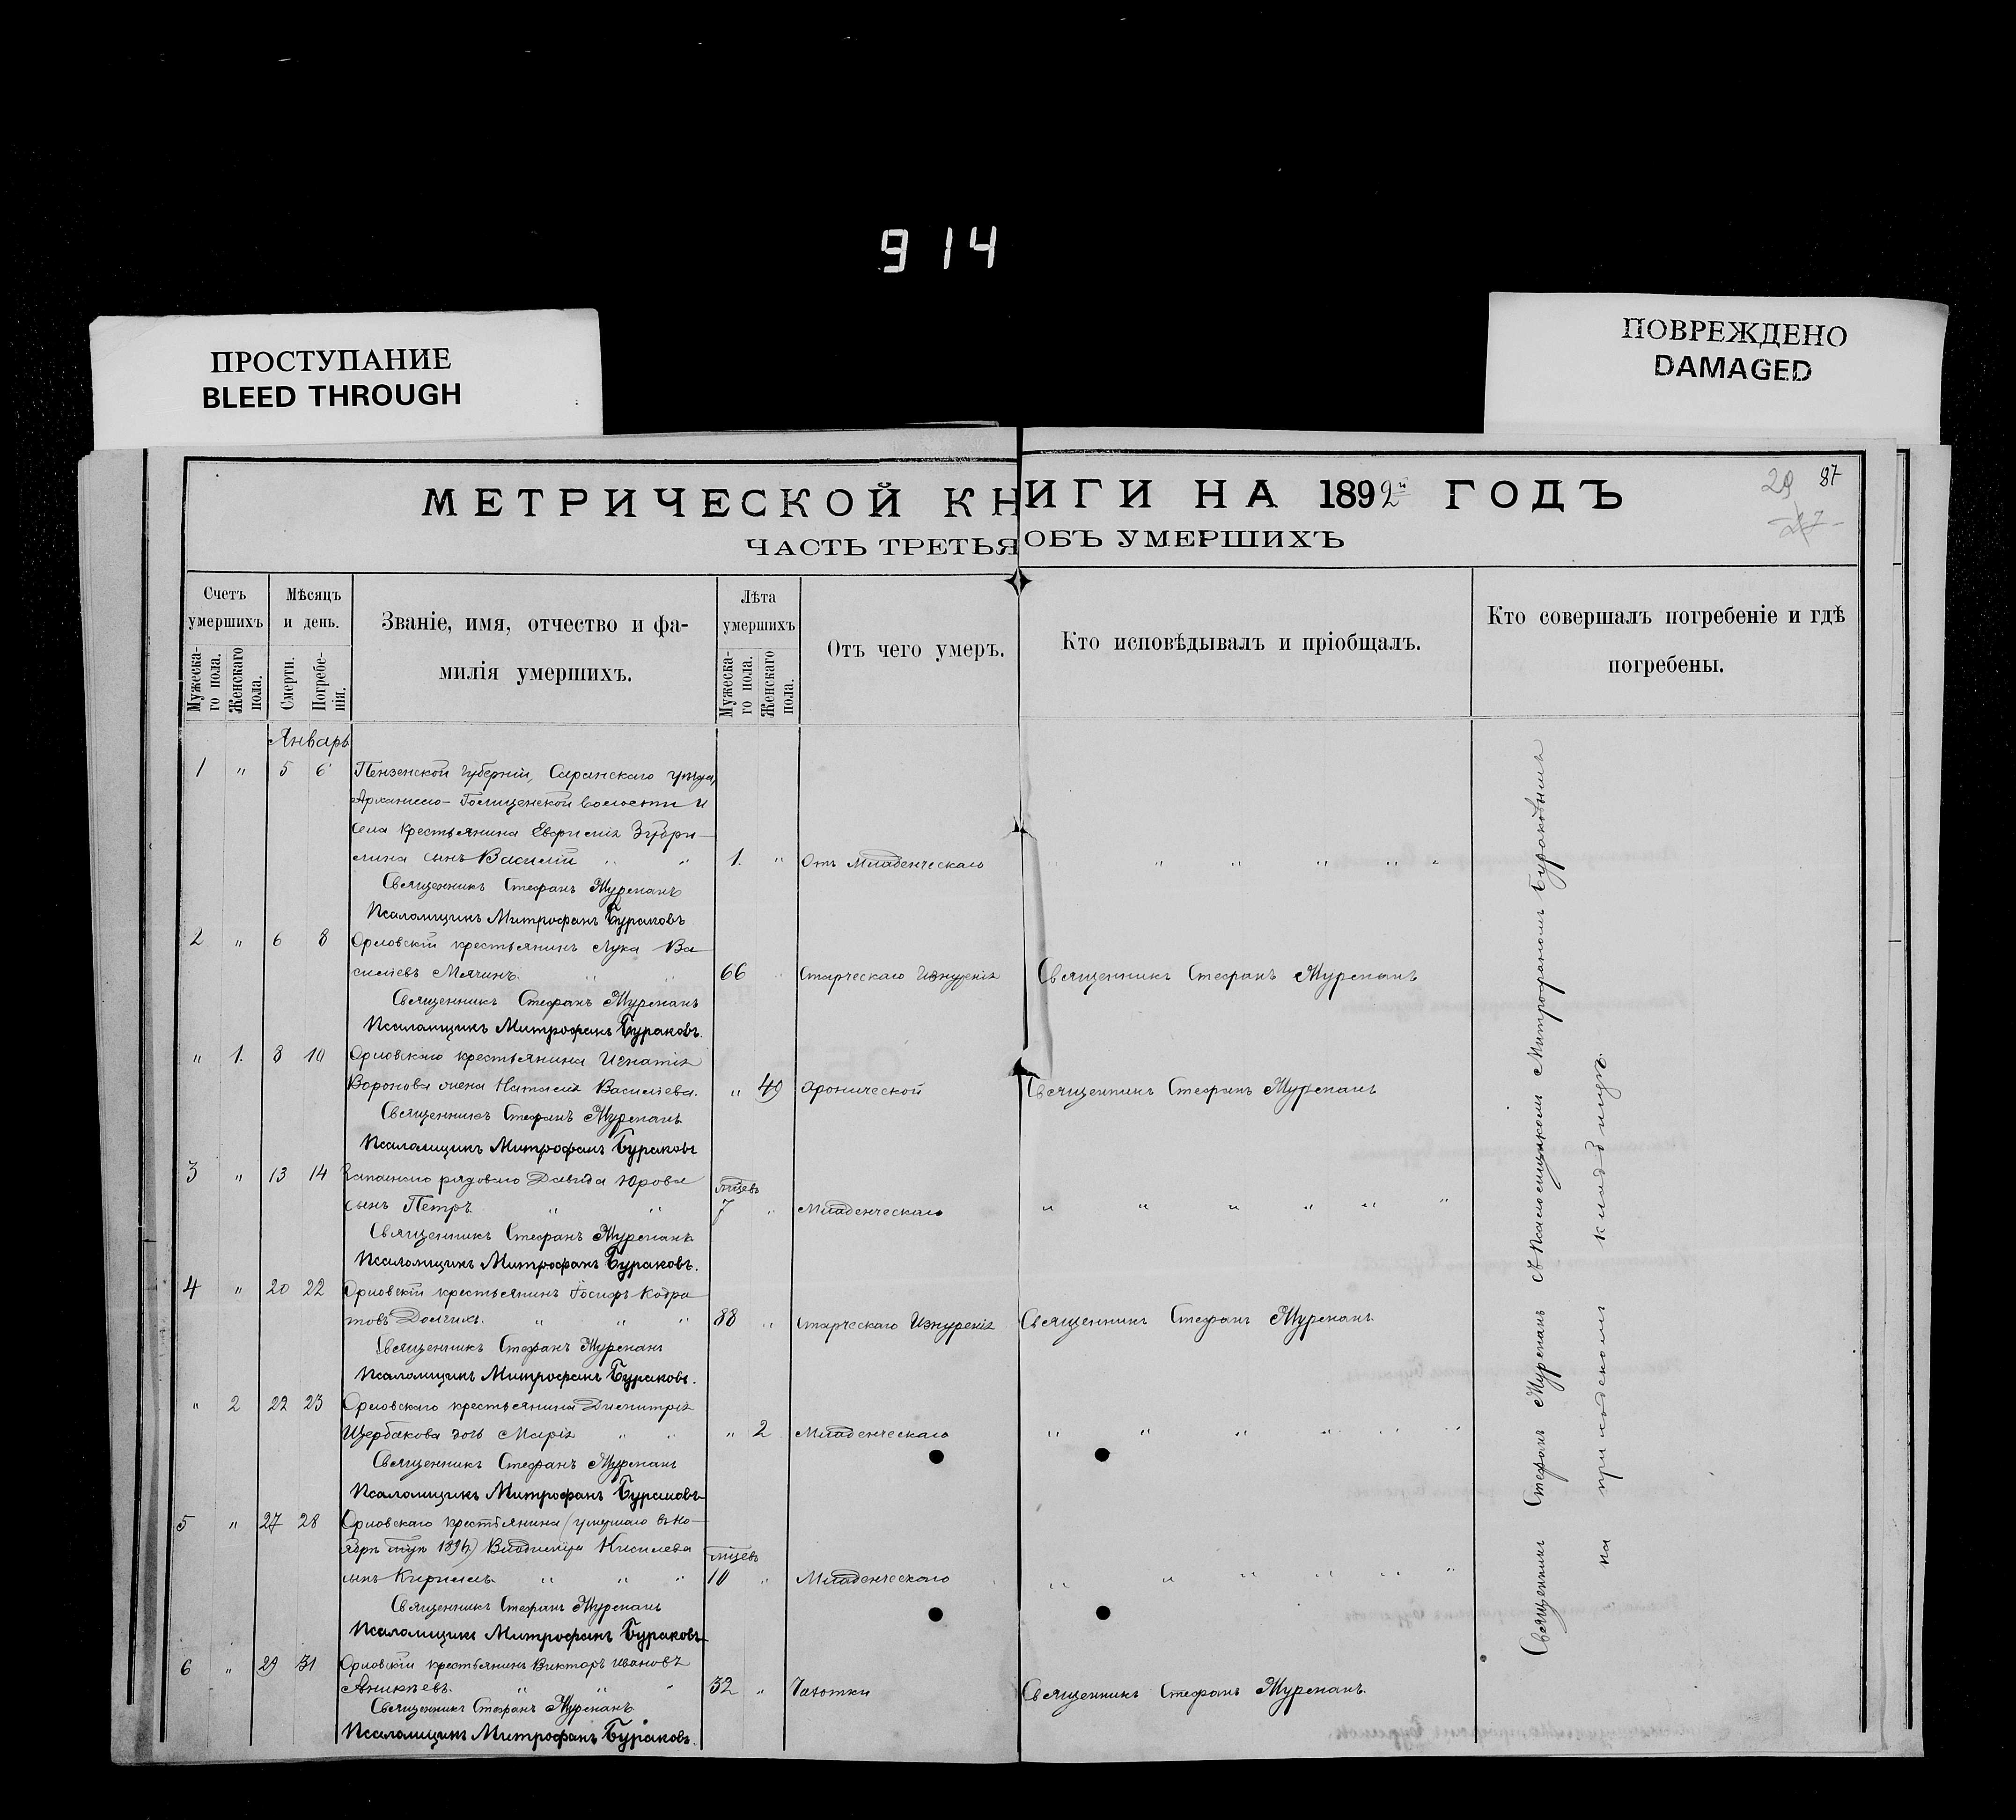 914
ПРОСТУПАНИЕ
BLEED THROUGH
ПОВРЕЖДЕНО
DAMAGED
МЕТРИЧЕСКОЙ КНИГИ НА 1892й ГОДЪ
29 87
ЧАСТЬ ТРЕТЬЯ ОБЪ УМЕРШИХЪ
Счетъ умершихъ
Мужеска-го пола.
Женскаго пола.
Мѣсяцъ и день.
Смерти.
Погребе-нія.
Званіе, имя, отчество и фа-
милія умершихъ.
Лѣта умершихъ
Мужеска-го пола.
Женскаго пола.
Отъ чего умеръ.
Кто исповѣдывалъ и пріобщалъ.
Кто совершалъ погребеніе и гдѣ
погребены.
Январь
1 " 5 6 Пензенской губерніи, Саранскаго уѣзда,
Архангело-Голиценской волости и
села крестьянина Евфимія Зубри-
лина сынъ Василій " " 1. " Отъ Младенческаго " " " " "
Священникъ Стефанъ Журепанъ
Псаломщикъ Митрофанъ Бураковъ
2 " 6 8 Орловскій крестьянинъ Лука Ва
силіевъ Мячинъ " " 66 " Старческаго Изнуренія Священникъ Стефанъ Журепанъ
Священникъ Стефанъ Журепанъ
Псаломщикъ Митрофанъ Бураковъ.
" 1. 8 10 Орловскаго крестьянина Игнатія
Воронова жена Наталія Василіева. " 49 Хронической Священникъ Стефанъ Журепанъ
Священникъ Стефанъ Журепанъ
Псаломщикъ Митрофанъ Бураковъ
3 " 13 14 Запаснаго рядоваго Давида Юрова
мѣсцевъ
сынъ Петръ " " 7 " Младенческаго " " " " " "
Священникъ Стефанъ Журепанъ
Псаломщикъ Митрофанъ Бураковъ.
4 " 20 22 Орловскій крестьянинъ Іосифъ Кодра
товъ Долгихъ. " " " 88 " Старческаго Изнуренія Священникъ Стефанъ Журепанъ.
Священникъ Стефанъ Журепанъ
Псаломщикъ Митрофанъ Бураковъ.
" 2 22 23 Орловскаго крестьянина Димитрія
Щербакова дочь Марія " " " 2 Младенческаго " " " " " "
Священникъ Стефанъ Журепанъ
Псаломщикъ Митрофанъ Бураковъ
5 " 27 28 Орловскаго крестьянина (умершаго въ но-
ябрѣ Владиміра Киселева
мѣсцевъ
сынъ Кириллъ. " " " 10 " Младенческаго " " " " " "
Священникъ Стефанъ Журепанъ
Псаломщикъ Митрофанъ Бураковъ
6 " 29 31 Орловскій крестьянинъ Викторъ Ивановъ
Аникѣевъ. " " " 32 " Чахотки Священникъ Стефанъ Журепанъ.
Священникъ Стефанъ Журепанъ
Псаломщикъ Митрофанъ Бураковъ.
Священникъ Стефанъ Журепанъ съ Псаломщикомъ Митрофаномъ Бураковымъ
на приходскомъ кладбищѣ.